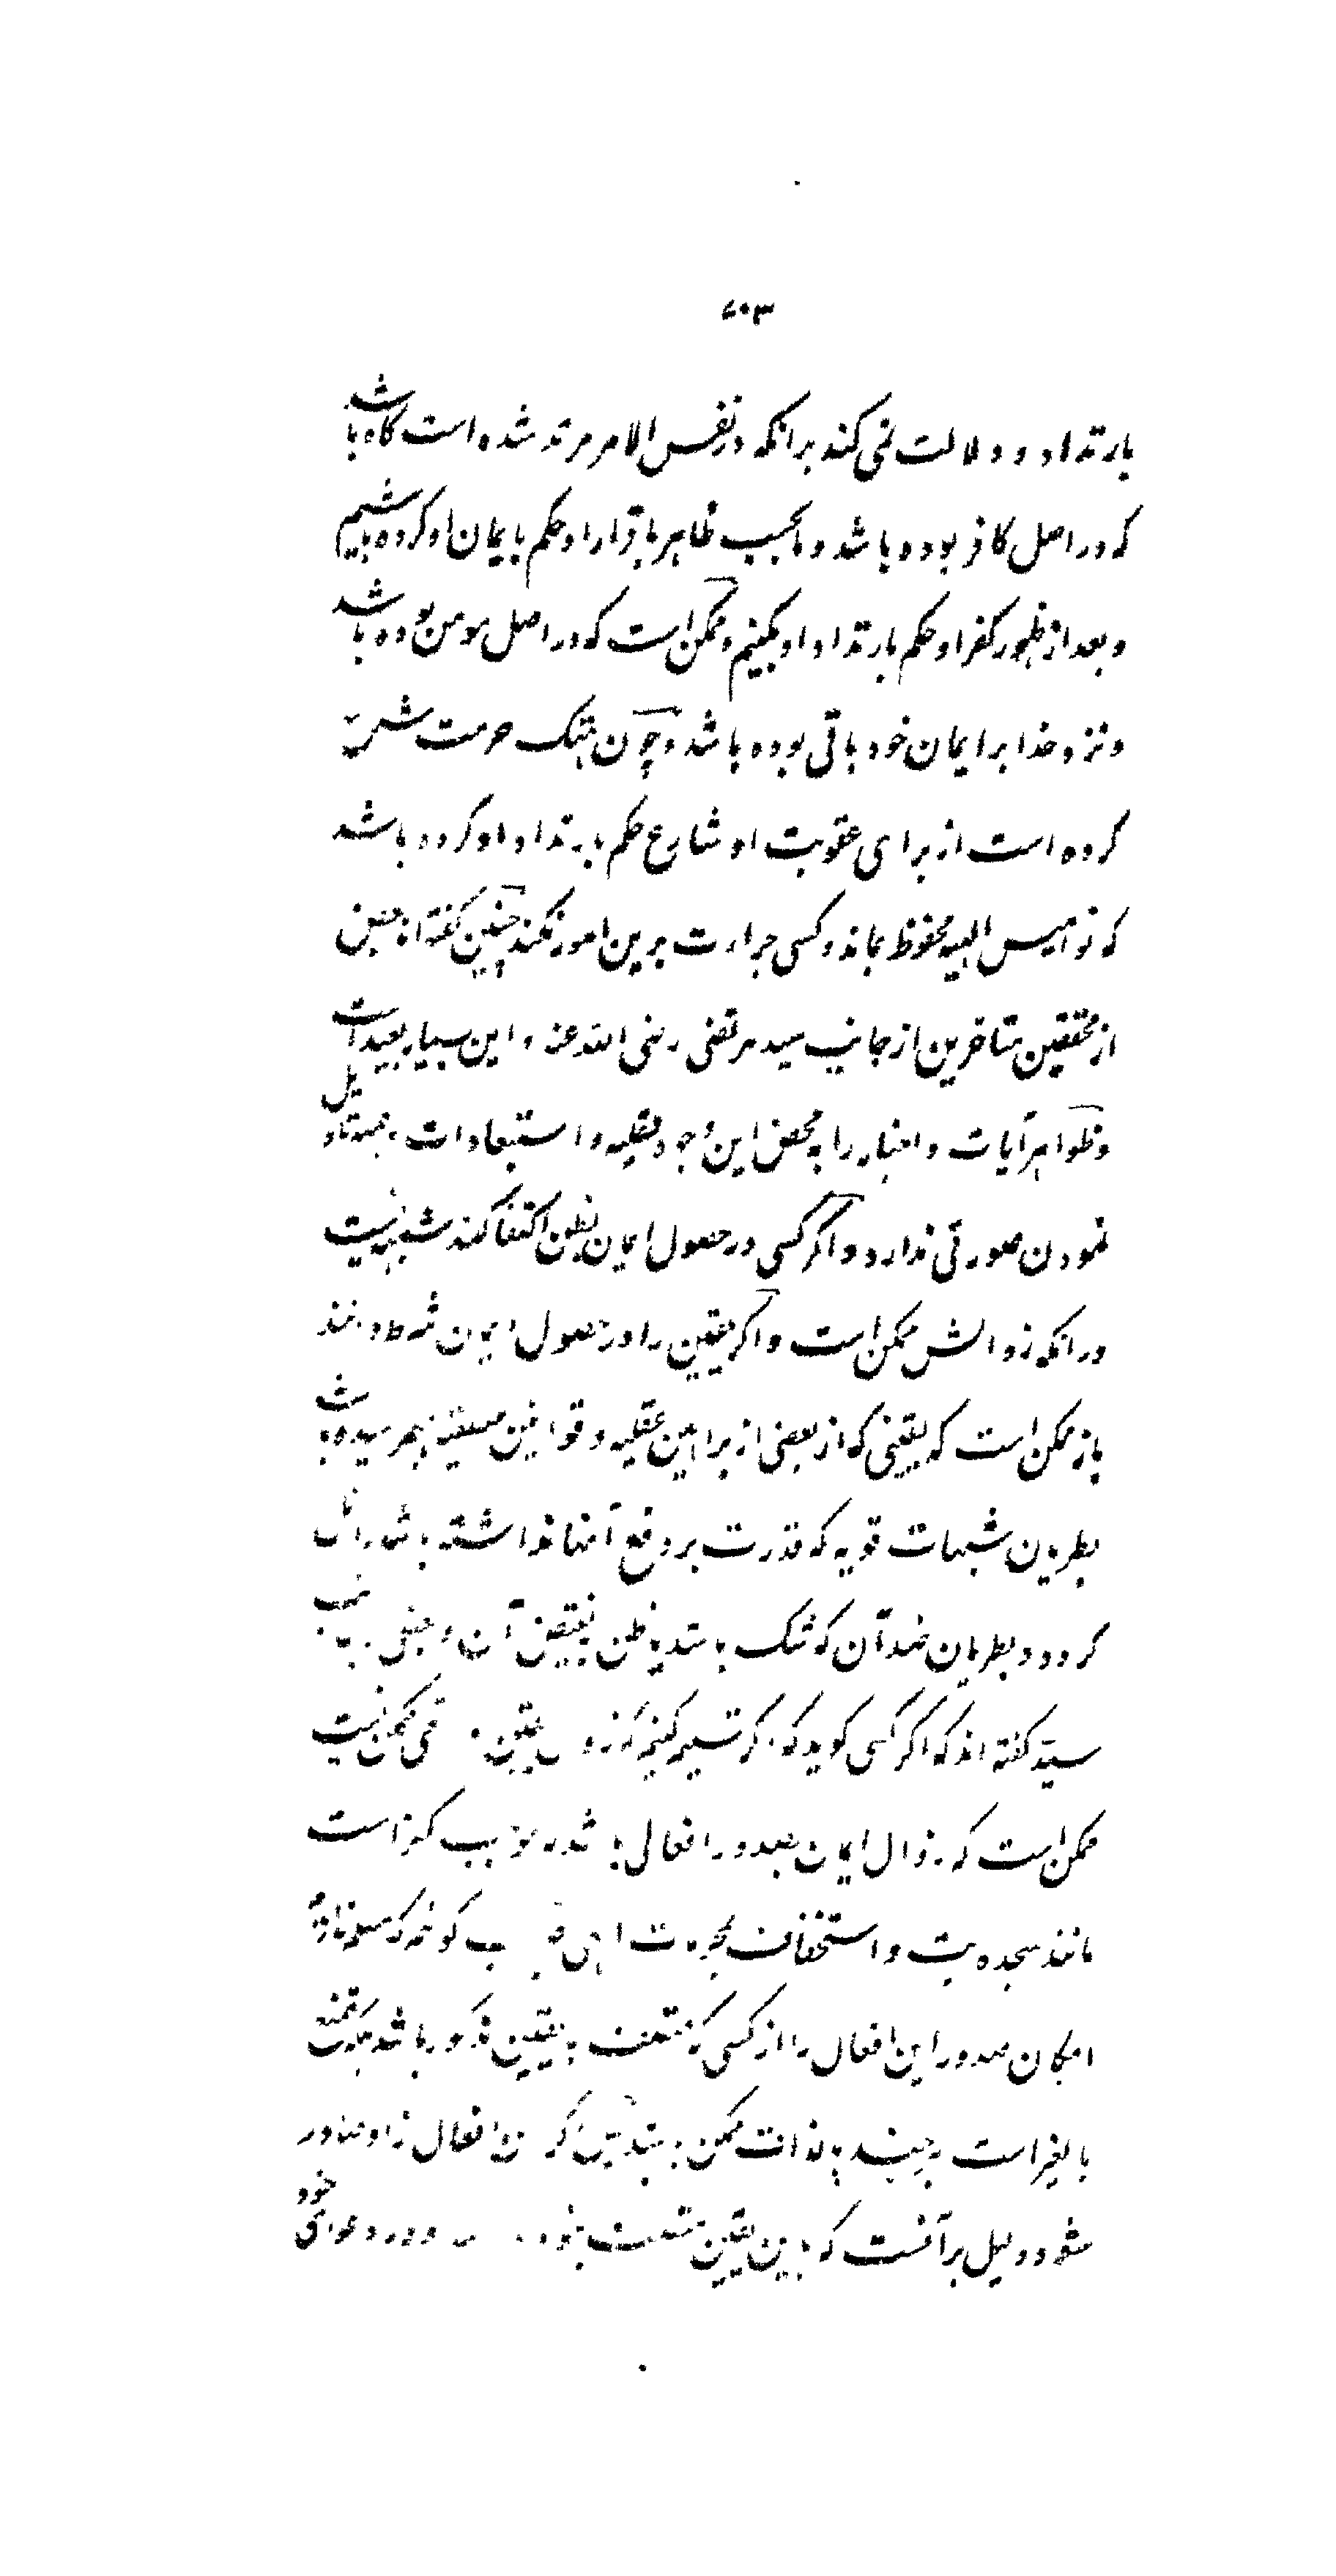 ۶۰۳
بارتداد و دلالت نمی کند برانکه در نفس الامر مرتد شده است گاه باشد
که در اصل کافر بوده باشد و ما بحسب ظاهر باقرار او حکم بایمان او کرده باشیم
و بعد از ظهور کفر او حکم بارتداد او بکنیم و ممکن است که در اصل مومن بوده باشد
و نزد خدا بر ایمان خود باقی بوده باشد و چون هتک حرمت شرع
کرده است از برای عقوبت او شارع حکم بارتداد او کرده باشد
که نوامیس الهیه محفوظ بماند و کسی جراءت برین امور نکند چنین گفته اند بعضی
از محققین متاخرین از جانب سید مرتضی رضی الله عنه و این بسیار بعید است
و ظواهر آیات و اخبار را به محض این وجوه عقلیه و استبعادات وهمیه تاویل
نمودن صورتی ندارد و اگر کسی در حصول ایمان بظن اکتفا کند شبهه نیست
در انکه زوالش ممکن است و اگر یقین را در حصول ایمان شرط دانند
باز ممکن است که یقینی که از بعضی از براهین عقلیه و قوانین بهم رسیده باشد
بطریان شبهات قویه که قدرت بر دفع آنها نداشته باشد زائل
گردد و بطریان ضد آن که شک باشد یا ظن بنقیض آن و بعضی از جانب
سید گفته اند که اگر کسی گوید که اگر تسلیم کنیم که زوال یقین ممکن نیست
ممکن است که زوال ایمان بصدور افعالی باشد که موجب کفر است
مانند سجده بت و استخفاف بحرمات الهی جواب گوئیم که مسلم نداریم
امکان صدور این افعال را از کسی که متصف به یقین مذکور باشد بلکه ممتنع
بالغیر است هرچند بالذات ممکن باشد پس اگر این افعال از او صادر
شود دلیل بر آنست که باین یقین متصف نبوده و در دعوای خود